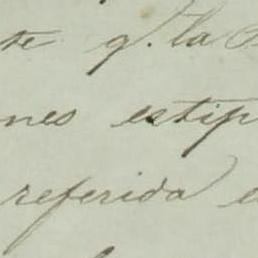 te q. la
nes estip
referida e